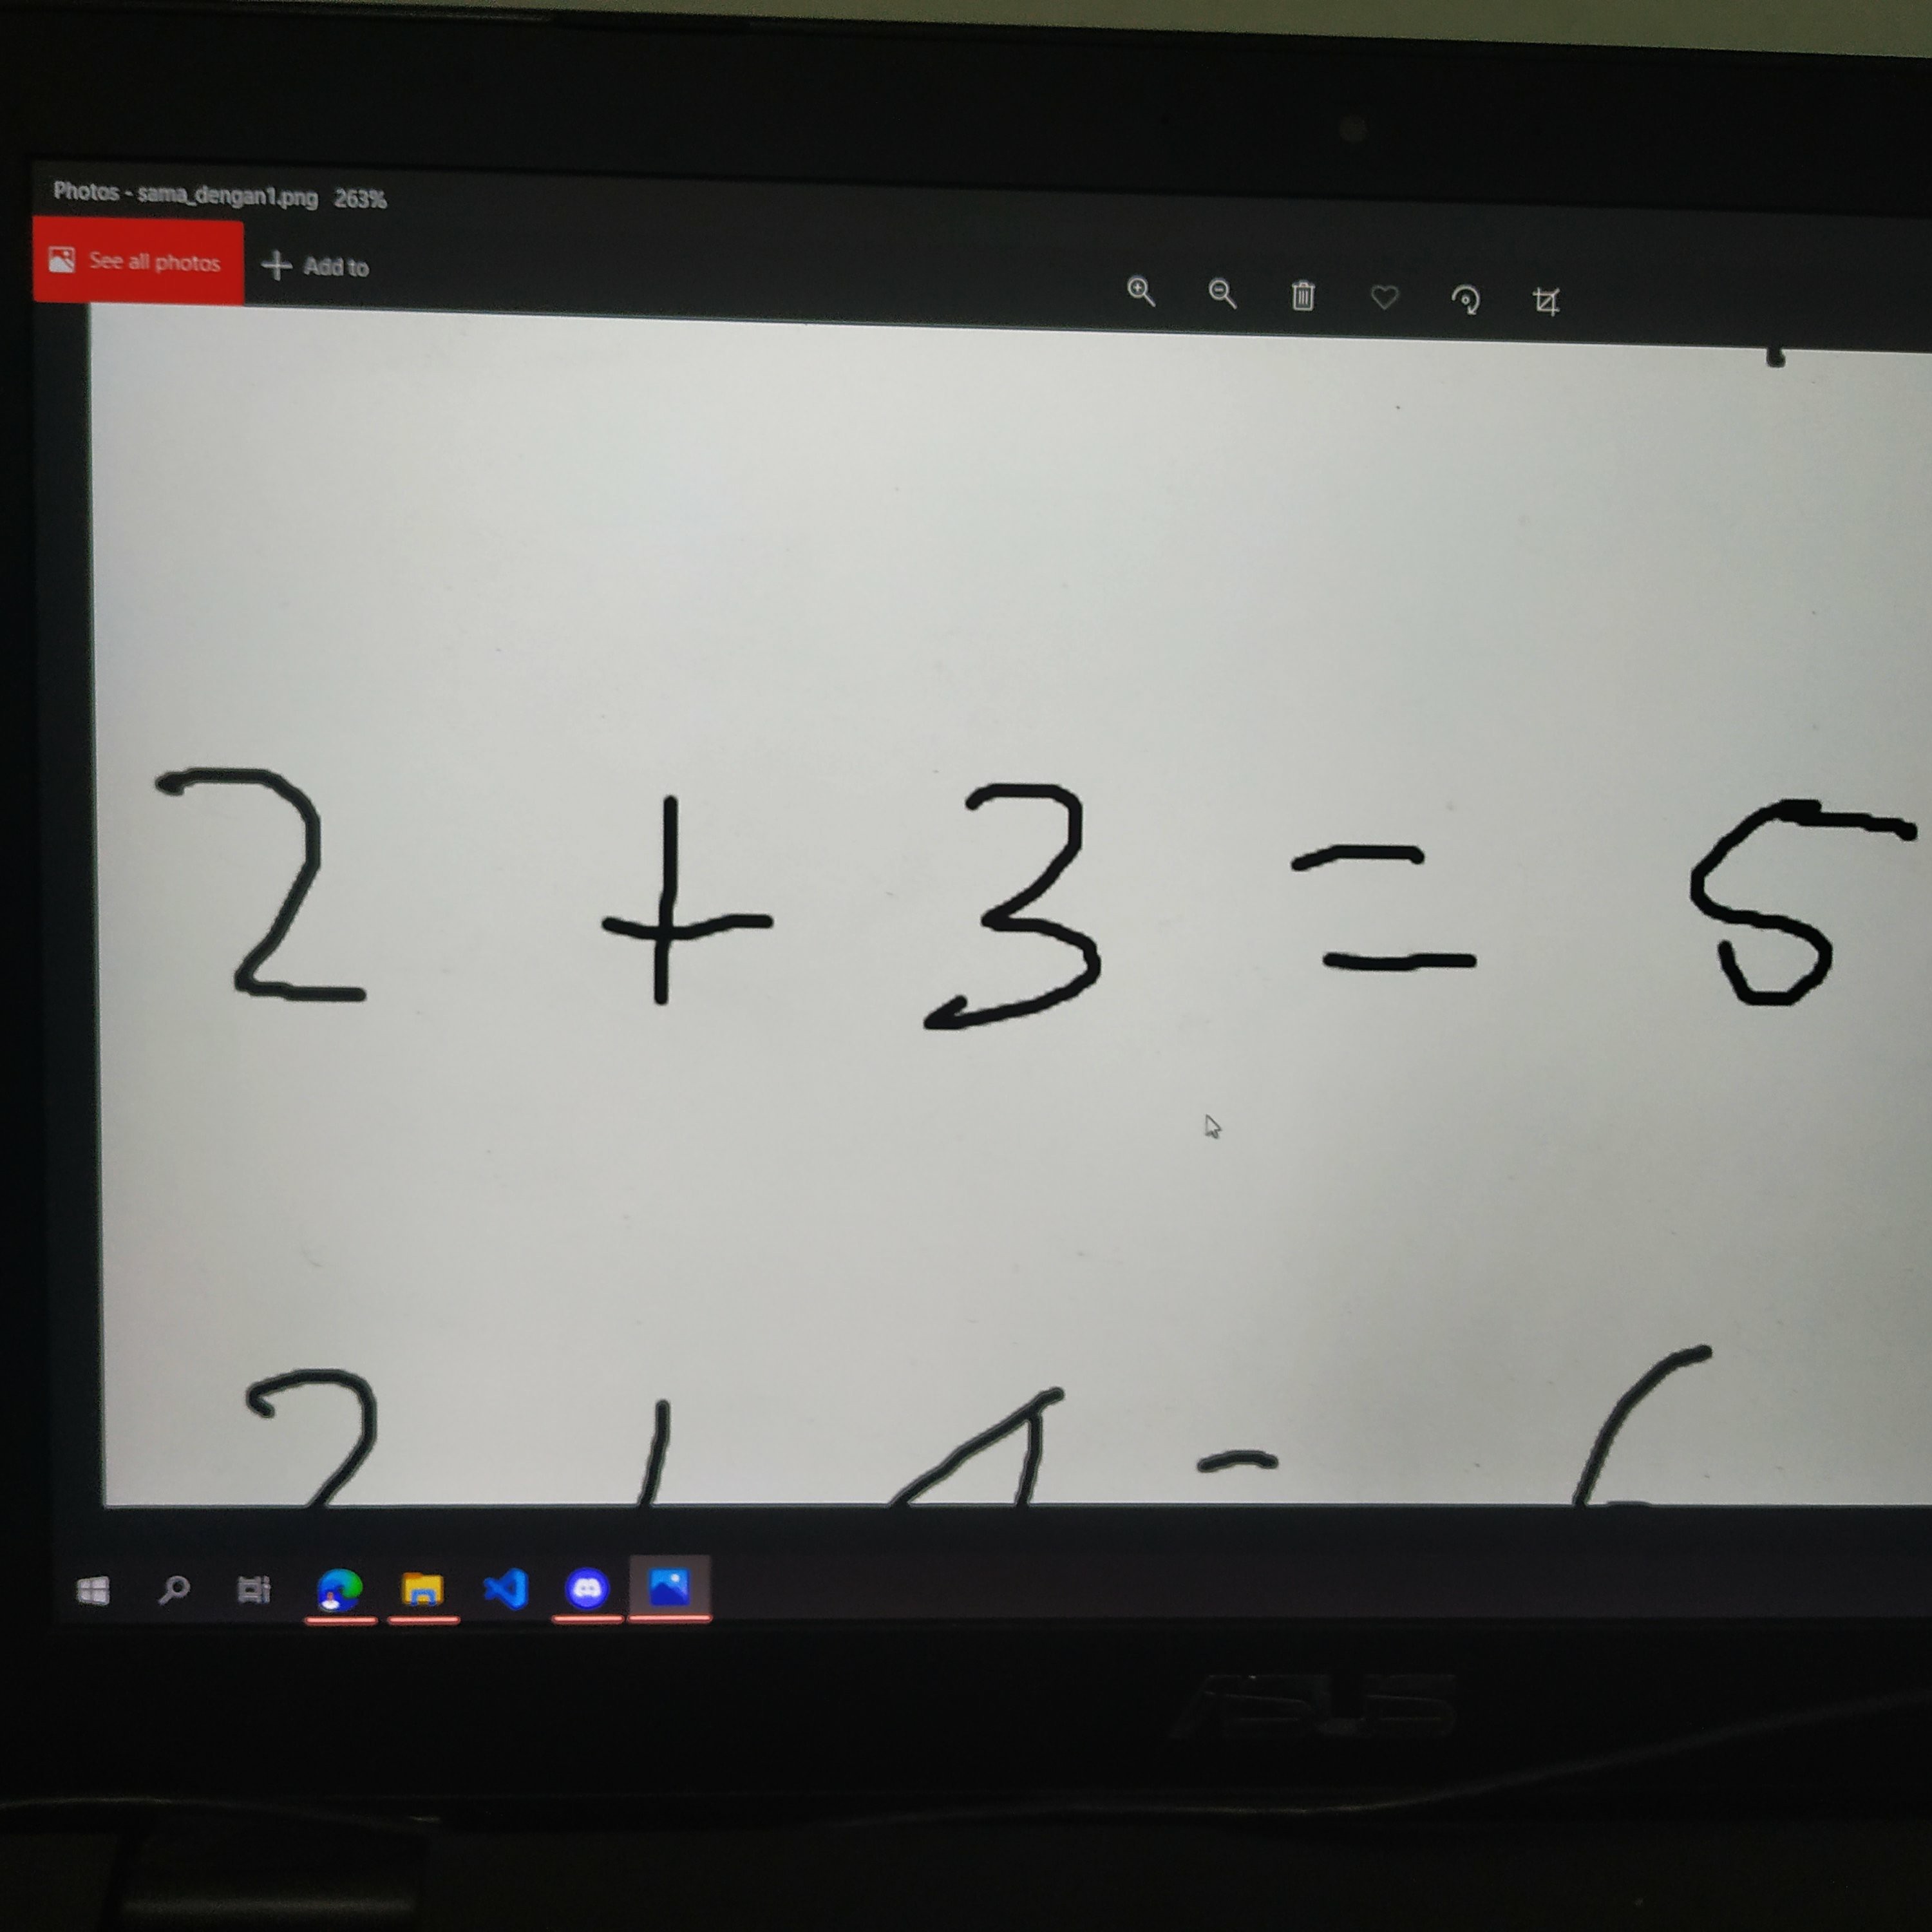 Photos - sama_dengan1.png 263%
See all photos
Add to
2 + 3 = 5
ASUS